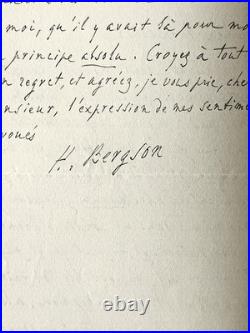 moi, qu'il y avait là pour mo
principe absolu. Croyez à tout
n regret, et agréez, je vous prie, che
onsieur, l'expression de mes sentime
voués
H. Bergson